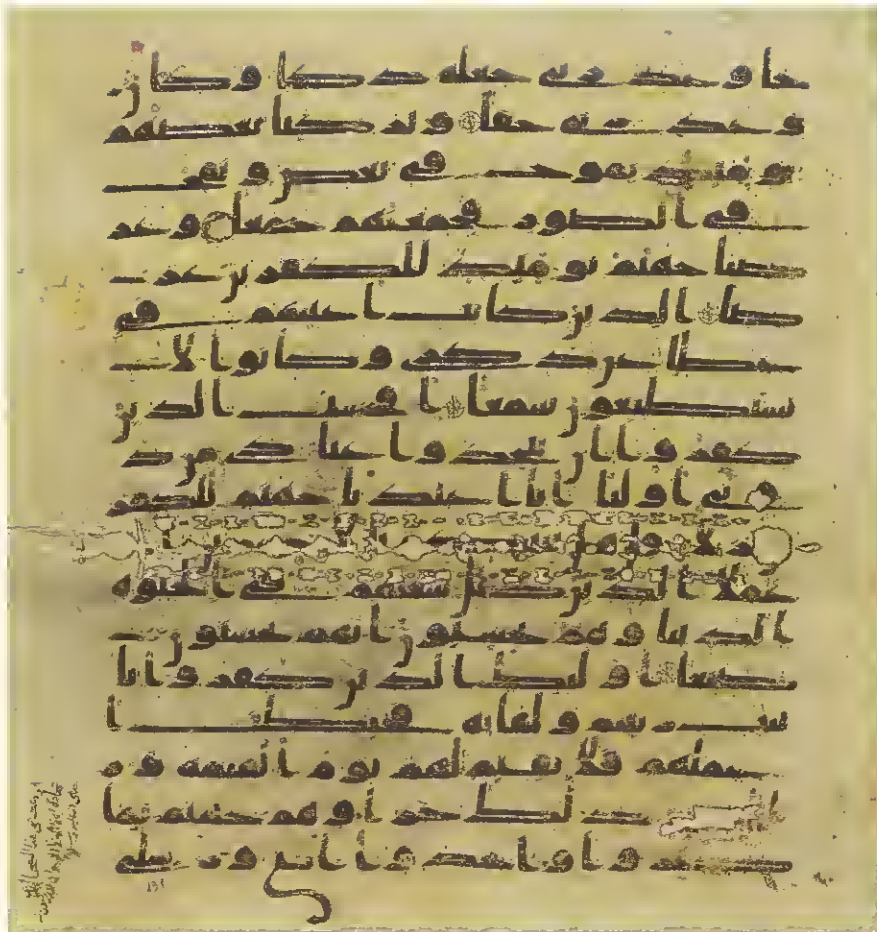 جا وعد ربى جعله دكا وكان
وعد ربى حقا وتركنا بعضهم
يومئذ يموج فى بعض ونفخ
فى الصور فجمعنهم جمعا وعر
ضنا جهنم يومئذ للكفرين عر
ضا الذين كانت اعينهم فى
غطا عن ذكرى وكانوا لا يـ
ستطيعون سمعا افحسب الذين
كفروا ان يتخذوا عبادى من د
ونى اوليا انا اعتدنا جهنم للكفر
ين نزلا
عملا الذين ضل سعيهم فى الحيوه
الدنيا وهم يحسبون انهم يحسنون
صنعا اولئك الذين كفروا بايا
ت ربهم ولقايه فحبطت ا
عملهم فلا نقيم لهم يوم القيمه وز
نا ذلك جزاوهم جهنم بما
كفروا واتخذوا ايتى ورسلى